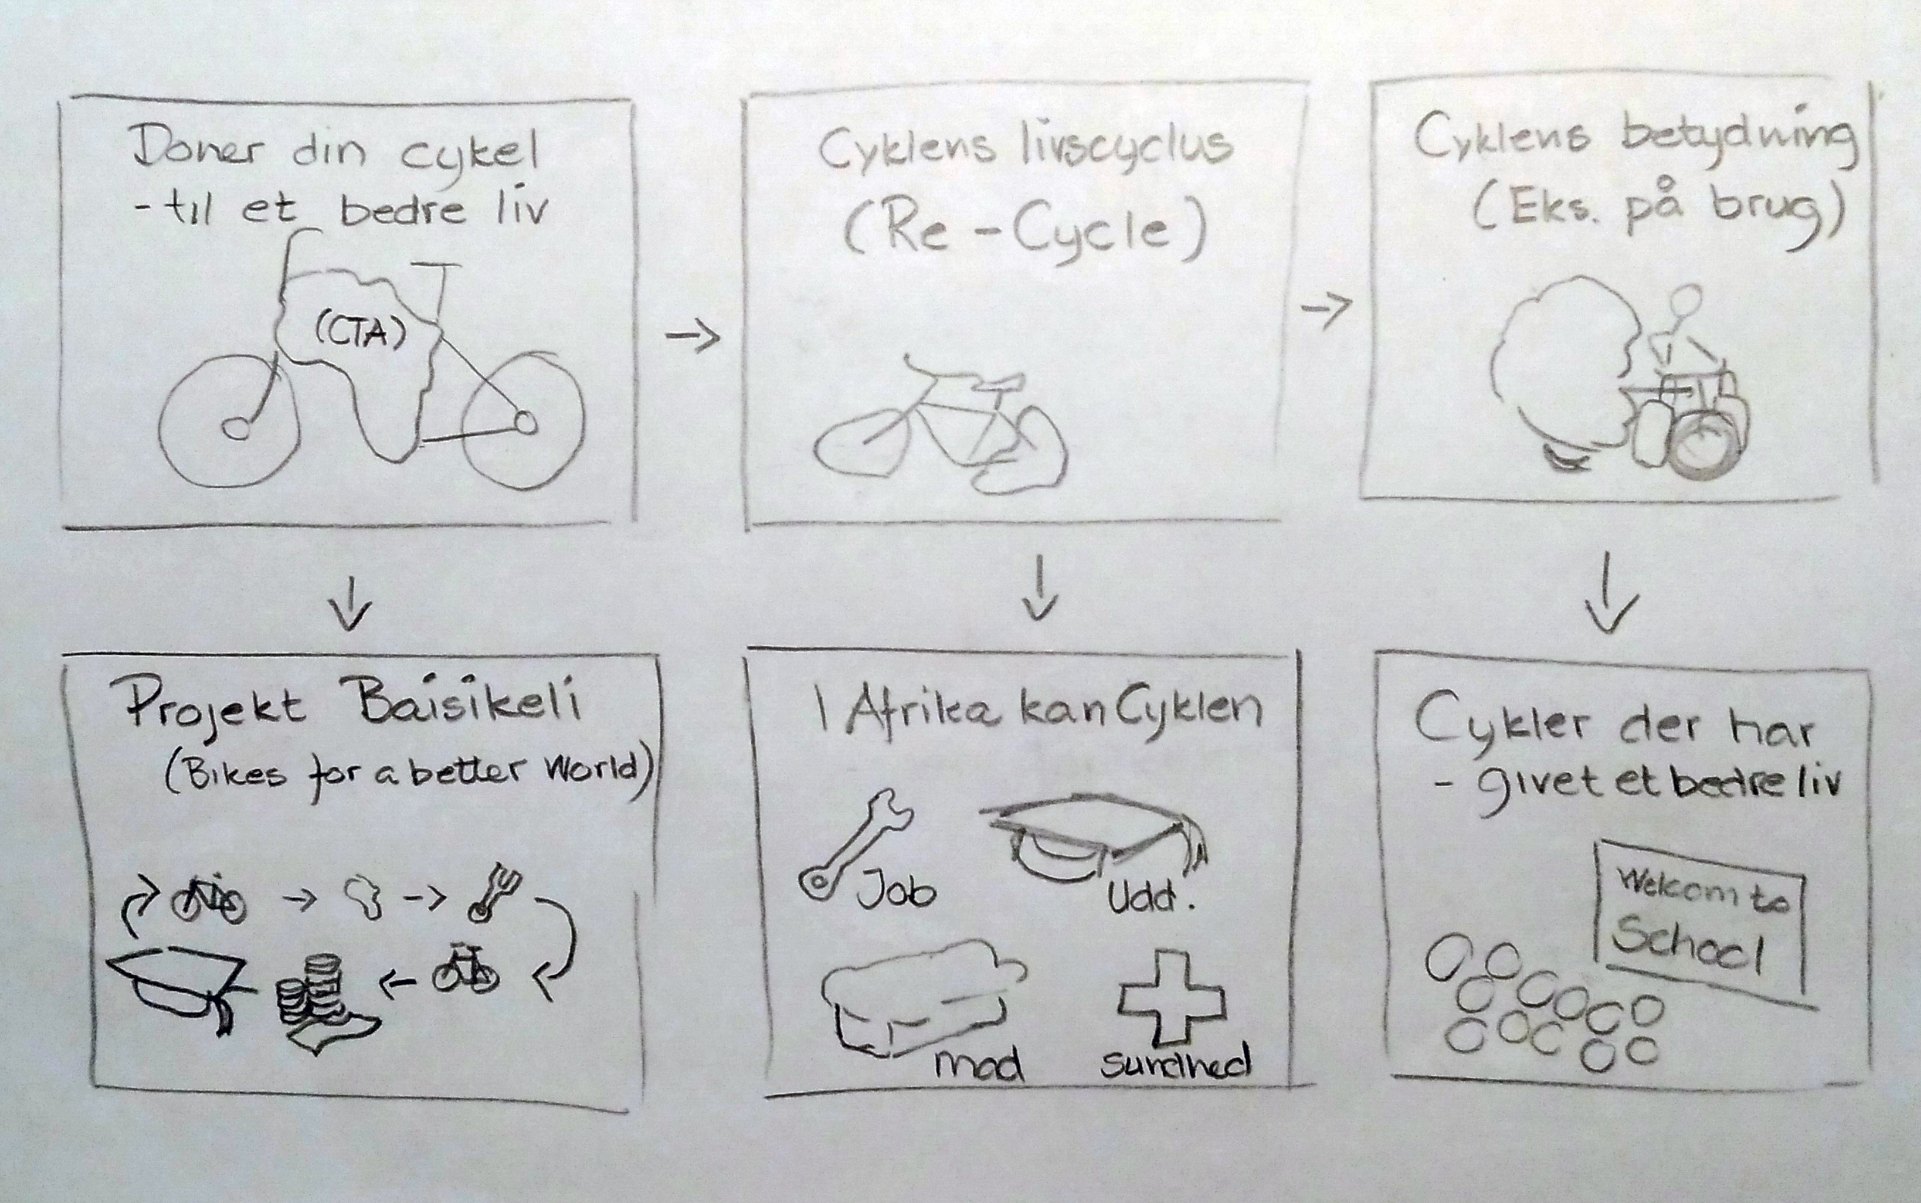 Doner din cykel
- til et bedre liv
(CTA)
Cyklens livscyclus
(Re - Cycle)
Cyklens betydning
(Eks. på brug)
Projekt Baisikeli
(Bikes for a better World)
I Afrika kan Cyklen
Job
Udd.
mad
sundhed
Cykler der har
- givet et bedre liv
Welcom to
School